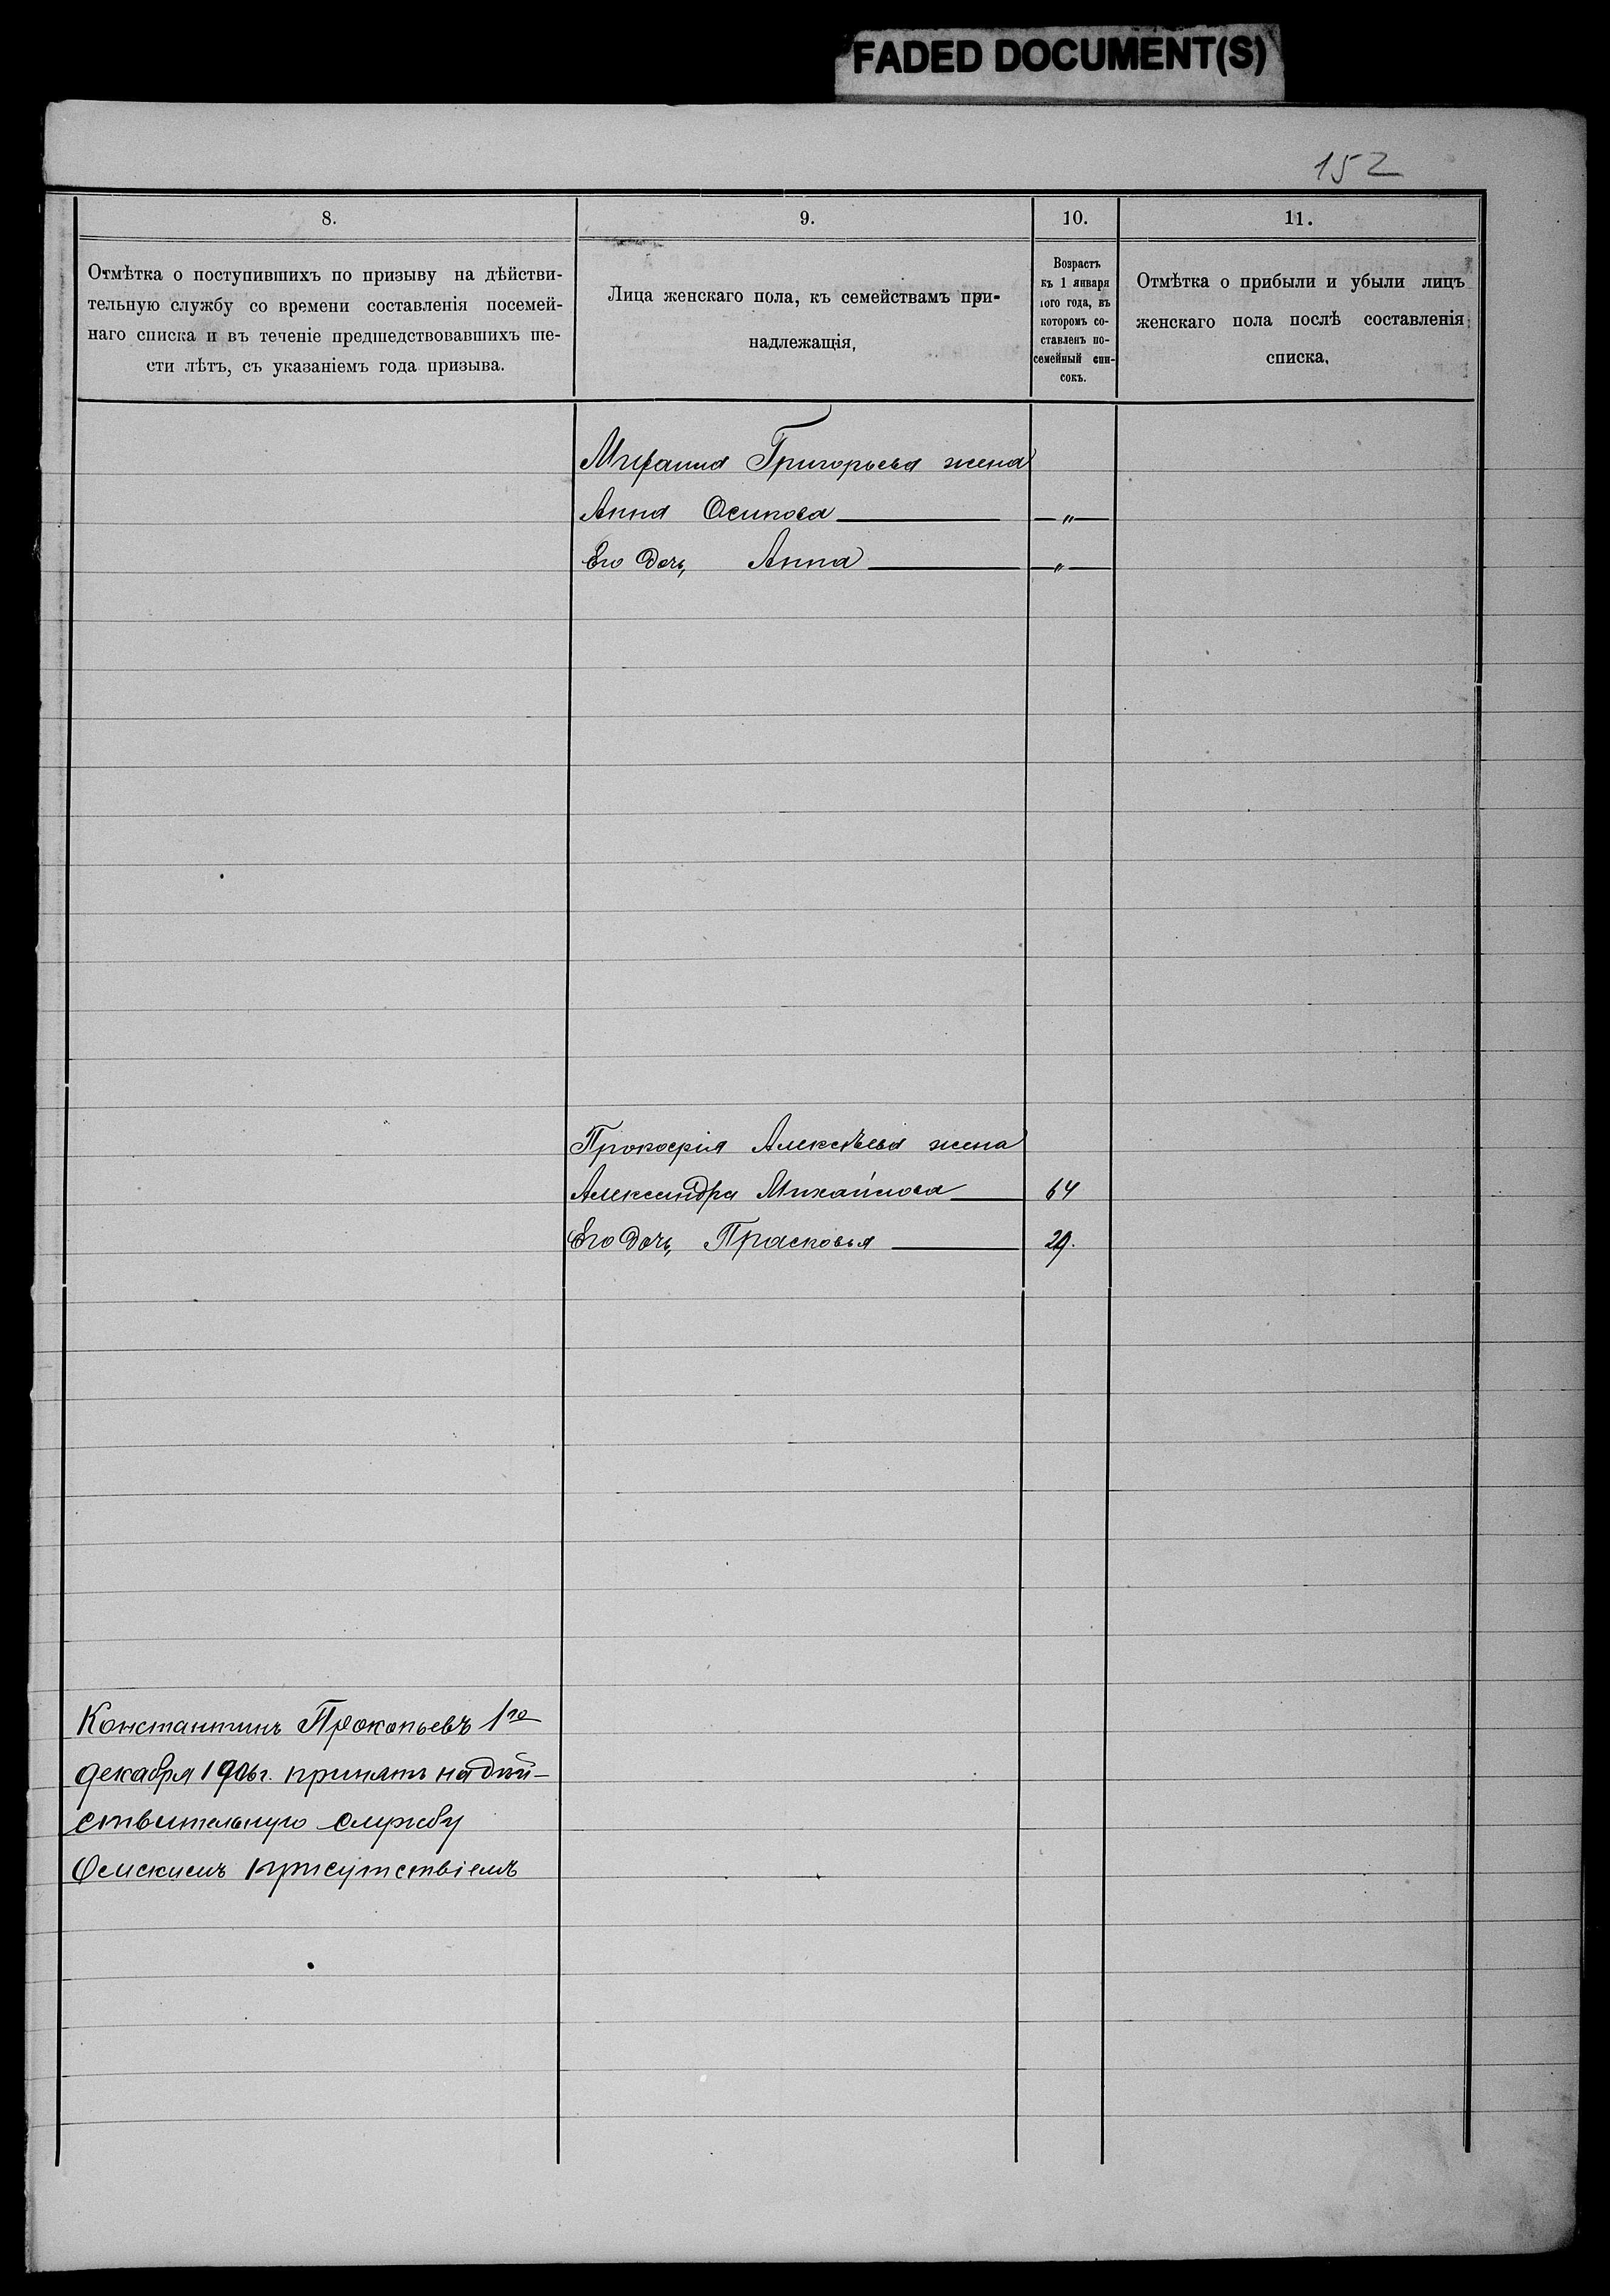 FADED DOCUMENT(S)
152
8.
Отмѣтка о поступившихъ по призыву на дѣйстви-
тельную службу со времени составленія посемей-
наго списка и въ теченіе предшедствовавшихъ ше-
сти лѣтъ, съ указаніемъ года призыва.
9.
Лица женскаго пола, къ семействамъ при-
надлежащія,
10.
Возрастъ
къ 1 января
того года, въ
которомъ со-
ставленъ по-
семейный спи-
сокъ.
11.
Отмѣтка о прибыли и убыли лицъ
женскаго пола послѣ составленія
списка.
Григорьева жена
Анна Осипова — „ —
Его дочь, Анна — „ —
Прокофія Алексѣева жена
Александра Михайлова — 64
Его дочь, Прасковья — 29.
Константинъ Прокопьевъ 1го
декабря 1906г. принятъ на дѣй-
ствительную службу
присутствіемъ